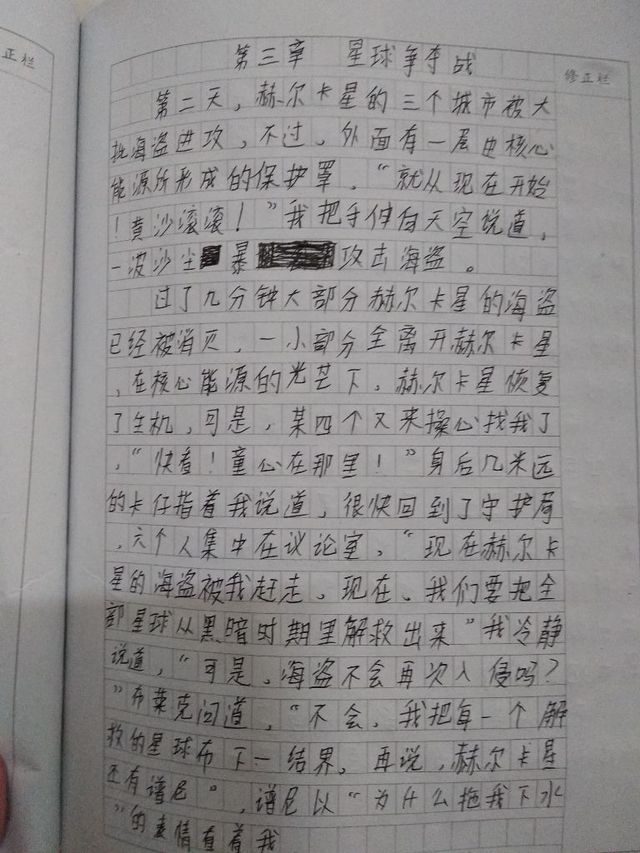 正栏
修正栏
第三章 星球争夺战
第二天，赫尔卡星的三个城市被大
批海盗进攻，不过，外面有一层由核心
能源所形成的保护罩，“就从现在开始
！黄沙滚滚！”我把手伸向天空说道，
一波沙尘暴攻击海盗。
过了几分钟大部分赫尔卡星的海盗
已经被消灭，一小部分全离开赫尔卡星
，在核心能源的光芒下，赫尔卡星恢复
了生机，可是，某四个又来操心找我了
，“快看！童心在那里！”身后几米远
的卡仔指着我说道，很快回到了守护局
，六个人集中在议论室，“现在赫尔卡
星的海盗被我赶走，现在、我们要把全
部星球从黑暗时期里解救出来”我冷静
说道，“可是，海盗不会再次入侵吗？
”布莱克问道，“不会，我把每一个解
救的星球布下一结界，再说，赫尔卡星
还有谱尼”，谱尼以“为什么拖我下水
”的表情直着我